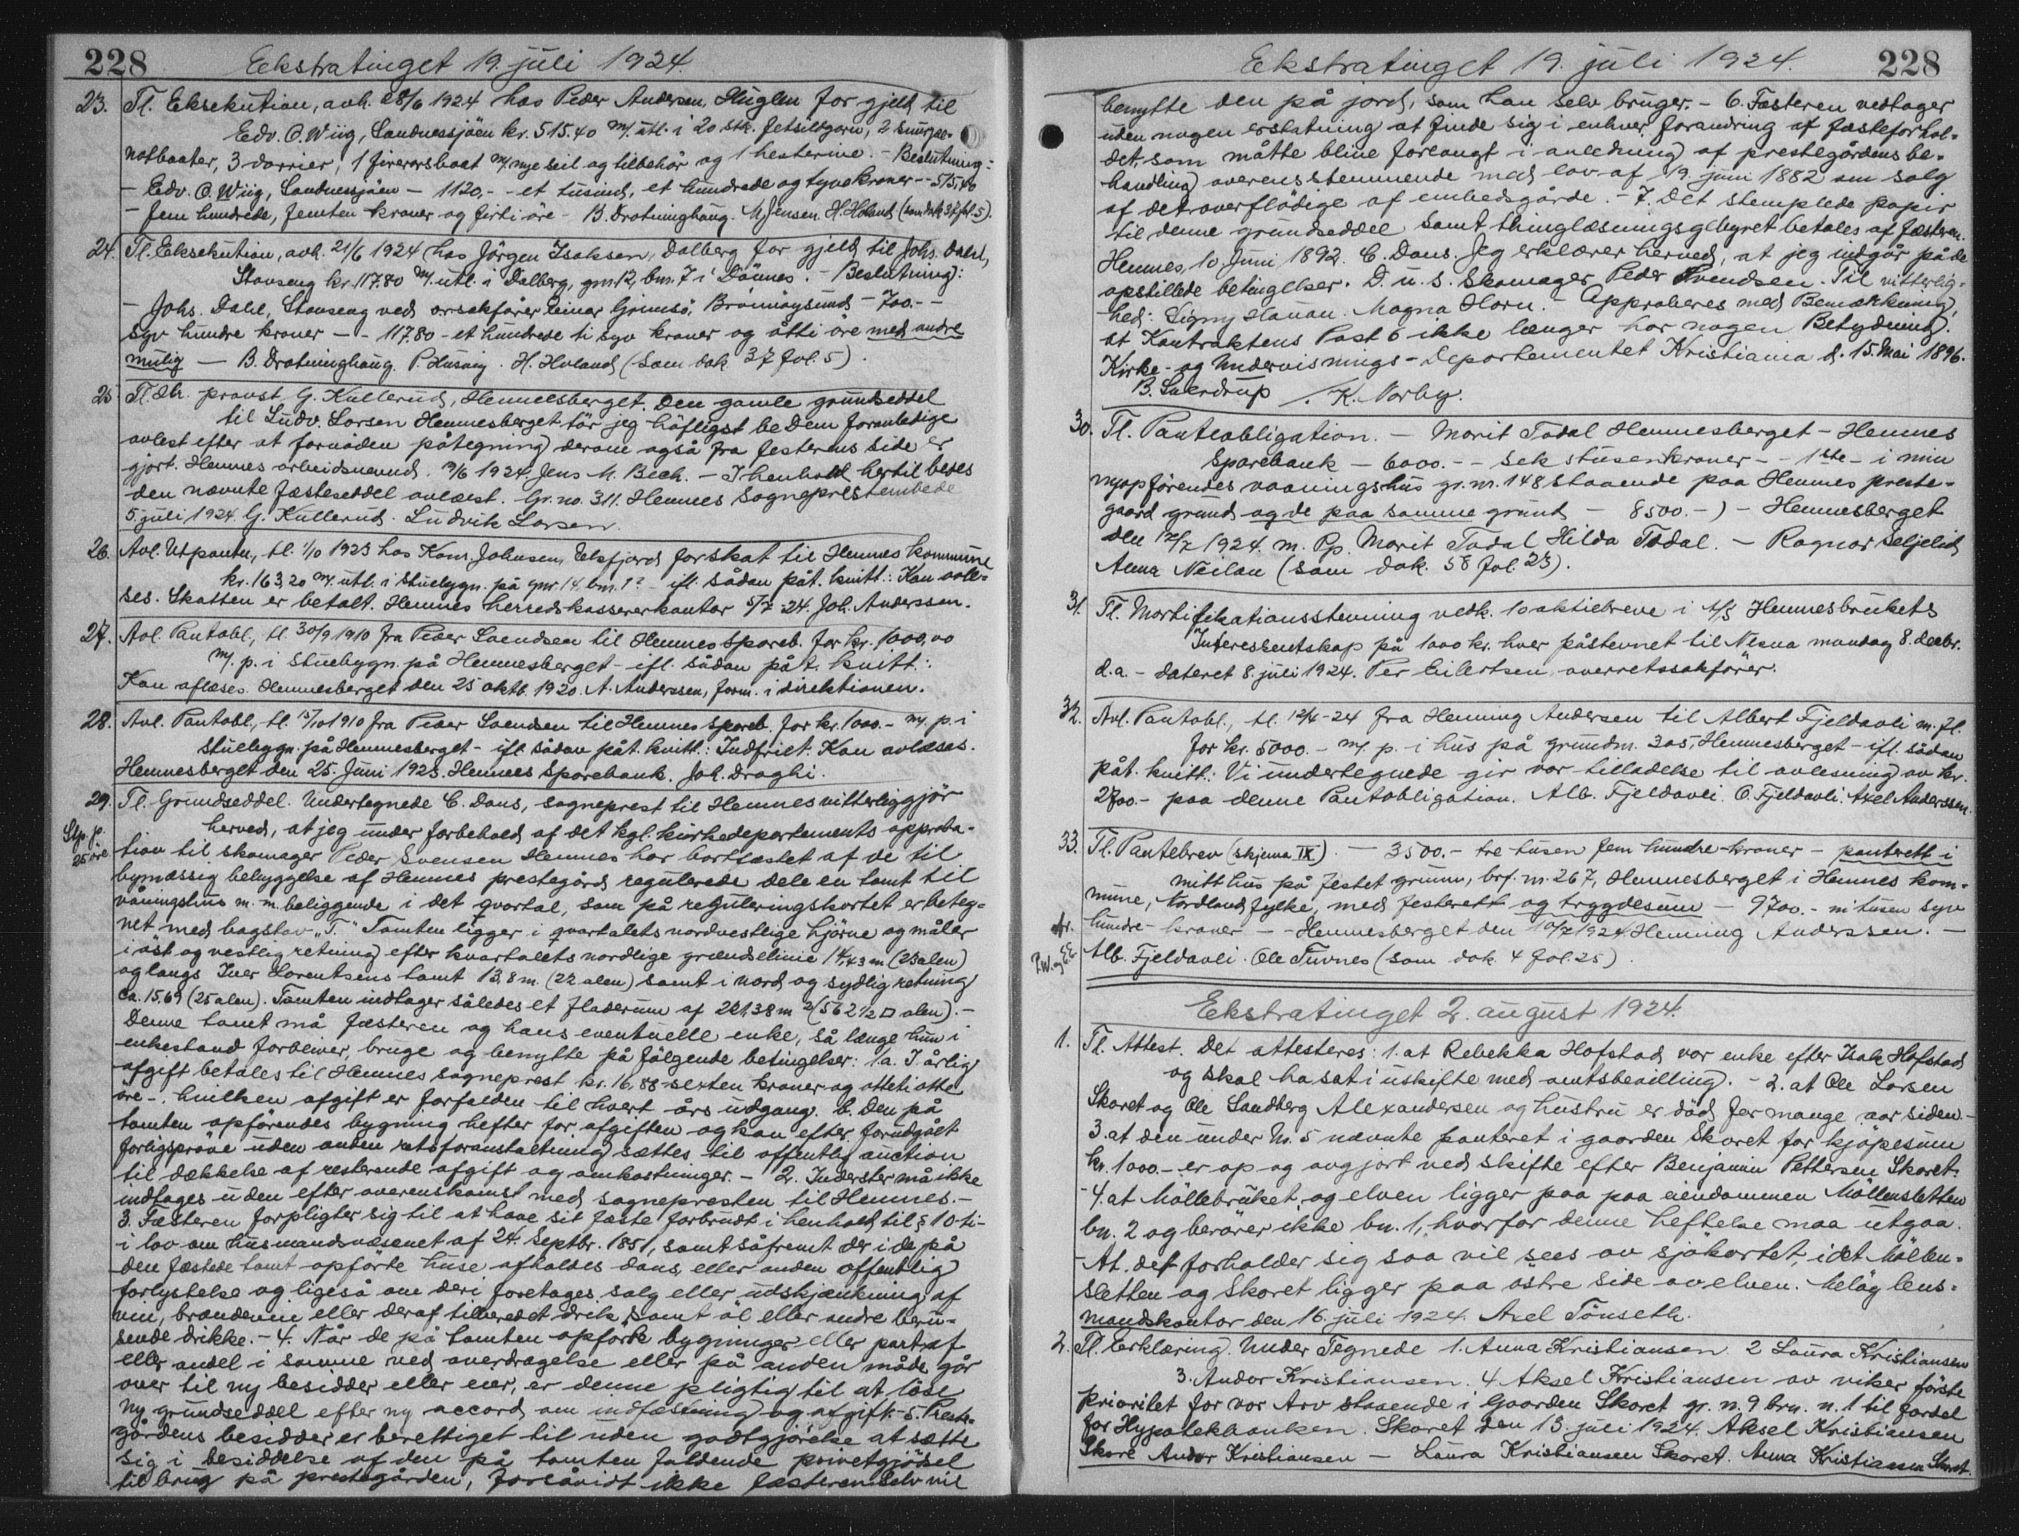 228 Ekstratinget 19. juli 1924.
23. Tl. Eksekution, avh. 28/6 1924 hos Peder Andersen, Huglen for gjeld til
Edv. O. Wiig, Sandnessjöen kr. 515.40 m/. utl. i 20 stk. fetsildgarn, 2 snurpe-
notbaater, 3 dorrier, 1 firerorsbaat m/ nye seil og tilbehör og 1 hesterive. - Beslutning:
- Edv. O. Wiig, Sandnessjöen - 1120.- - et tusind, et hundrede og tyve kroner - 515,40
- fem hundrede, femten kroner og firti öre - B. Drotninghaug. M. Jensen. H. Holand (som dok 37 fol. 5).
24. Tl. Eksekution, avh. 21/6 1924 hos Jörgen Isaksen, Dalberg for gjeld til Johs. Dahl,
Stavseng kr. 117.80 m/. utl. i Dalberg, gnr. 12, bnr. 7 i Dönnes. - Beslutning:
- Johs. Dahl, Stavseng ved orsakförer Einar Grimsö, Brönnöysund - 700.- -
syv hundre kroner - - 117.80 - et hundrede ti syv kroner og åtti öre med andre
mulig - B. Drotninghaug. P. Husvig. H. Holand (som dok 37 fol. 5).
25 Tl. Hr. provst G. Kullerud, Hemnesberget. Den gamle grundseddel
til Ludv. Larsen Hemnesberget tör jeg höfligst be Dem foranledige
avlest efter at fornöden påtegning derom også fra festerens side er
gjort. Hemnes arbeidsnemnd. /6 1924. Jens M. Bech. - I henhold hertil bedes
den nævnte fæsteseddel avlæst. Gr. no. 311. Hemnes Sogneprestembede
5. juli 1924. G. Kullerud. Ludvik Larsen.
26. Avl. Utpantn., tl. 1/10 1923 hos Konr. Johnsen, Elsfjord for skat til Hemnes kommune
kr. 163,20 m/. utl. i stuebygn. på gnr. 14, bnr. 1? - ifl. sådan påt. kvitt.: Kan avle-
ses. Skatten er betalt. Hemnes herredskassererkontor 5/7-24. Joh. Anderssen.
27. Avl. Pantobl., tl. 30/9 1910 fra Peder Svendsen til Hemnes Spareb. for kr. 1000,00
m/. p. i stuebygn. på Hemnesberget - ifl. sådan påt. kvitt.:
Kan aflæses. Hemnesberget den 25 oktb. 1920. A. Anderssen, form. i direktionen.
28. Avl. Pantobl., tl. 15/10 1910 fra Peder Svendsen til Hemnes Spareb. for kr. 1000.- m/. p. i
stuebygn. på Hemnesberget - ifl. sådan påt. kvitt.: Indfriet. Kan avlæses.
Hemnesberget den 25. Juni 1923. Hemnes Sparebank. Joh. Draghi.
29. Tl. Grundseddel. Undertegnede C. Dons, sogneprest til Hemnes vitterliggjör
herved, at jeg under forbehold af det kgl. kirkedepartements approba-
Stp. p.
25 öre
tion til skomager Peder Svensen Hemnes har bortfæstet af de til
bymæssig bebyggelse af Hemnes prestegård regulerede dele en tomt til
våningshus m. m. beliggende i det qvartal, som på reguleringskartet er beteg-
net med bogstav „T." Tomten ligger i qvartalets nordvestlige hjörne og måler
i öst og vestlig retning efter kvartalets nordlige grændselinie 14,43 m (23 alen)
og langs Iver Lorentsens tomt 13,8 m. (22 alen) samt i nord og sydlig retning
ca. 15,69 (25 alen). Tomten indtager således et fladerum af 221,38 m² (562 1/2 □ alen). -
Denne tomt må fæsteren og hans eventuelle enke, så længe hun i
enkestand forbliver, bruge og benytte på fölgende betingelser: 1a. I årlig
afgift betales til Hemnes sogneprest kr. 16,88 - sexten kroner og otteti otte
öre -. hvilken afgift er forfalden til hvert års udgang. b. Den på
tomten opförendes bygning hefter for afgiften og kan efter forudgået
forligspröve uden anden retsforanstaltning sættes til offentlig auction
til dækkelse af resterende afgift og omkostninger. - 2. Inderster må ikke
indtages uden efter overenskomst med sognepresten til Hemnes. -
3. Fæsteren forpligter sig til at have sit fæste forbrudt i henhold til § 10 ti-
i lov om husmandsvæsenet af 24. Septbr. 1851, samt såfremt der i de på
den fæstede tomt opförte huse afholdes dans eller anden offentlig
forlystelse og ligeså om deri foretages salg eller udskjænkning af
vin, brændevin eller deraf tilberedet drik, samt öl eller andre beru-
sende drikke. - 4. Når de på tomten opförte bygninger eller part af
eller andel i samme ved overdragelse eller på anden måde går
over til ny besidder eller eier, er denne pligtig til at löse
ny grundseddel efter ny accord om indfæstning og afgift. - 5. Preste-
gårdens besidder er berettiget til uden godtgjörelse at sætte
sig i besiddelse af den på tomten faldende privetgjödsel
til brug på prestegården, forsåvidt ikke fæsteren selv vil
Ekstratinget 19. juli 1924. 228
benytte den på jord, som han selv bruger. - 6. Fæsteren vedtager
uden nogen erstatning at finde sig i enhver forandring af fæsteforhol-
det, som måtte blive forlangt i anledning af prestegårdens be-
handling overensstemmende med lov af 19. juni 1882 om salg
af det overflödige af embedsgårde. - 7. Det stemplede papir
til denne grundseddel samt thinglæsningsgebyret betales af fæsteren.
Hemnes, 10 Juni 1892. C. Dons. Jeg erklærer herved, at jeg indgår på de
opstillede betingelser. D. u. s. Skomager Peder Svendsen. Til vitterlig-
hed: Signy Hanan. Magna Horn. - Approberes med Bemærkning,
at Kontraktens Post 6 ikke længer har nogen Betydning.
Kirke- og Undervisnings-Departementet Kristiania d. 15. Mai 1896.
B. Sverdrup /. K. Norby.
30. Tl. Panteobligation. - Marit Todal Hemnesberget - Hemnes
Sparebank - 6000.- - seks tusen kroner - - 1ste - i min
nyopförendes vaaningshus gr. nr. 148 staaende paa Hemnes preste-
gaard grund og de paa samme grund - 8500.-) - Hemnesberget
den 12/7 1924. m. Pp. Marit Todal Hilda Todal. - Ragnar Seljelid
Anna Neilan (som dok. 58 fol. 23).
31. Tl. Mortifikationsstevning vedk. 10 aktiebreve i A/S Hemnesbrukets
Interessentskap på 1000 kr. hver påstevnet til Nesna mandag 8. decbr.
d.a. - dateret 8. juli 1924. Per Eilertsen, overretssakförer.
32. Avl. Pantobl., tl. 12/4-24 fra Henning Andersen til Albert Fjeldavli m. fl.
for kr. 5000.- m/. p. i hus på grundnr. 305, Hemnesberget - ifl. sådan
påt. kvitt.: Vi undertegnede gir vor tilladelse til avlesning av kr.
2700.- paa denne Pantobligation. Alb. Fjeldavli. O. Fjeldavli. Axel Anderssen.
33. Tl. Pantebrev (skjema IX). - 3500.- tre tusen fem hundre kroner - panterett i
mitt hus på festet grunn, brf. nr. 267, Hemnesberget i Hemnes kom-
mune, Nordland fylke, med festerett og trygdesum - 9700.- ni tusen syv
hundre kroner - - Hemnesberget den 10/7 1924. Henning Anderssen. -
Alb. Fjeldavli. Ole Tuvnes (som dok. 4 fol. 25).
Ekstratinget 2. august 1924.
1. Tl. Attest. Det attesteres: 1. at Rebekka Hofstad var enke efter Isak Hofstad
og skal ha sat i uskifte med amtsbevilling. - 2. at Ole Larsen
Skaret og Ole Sandberg Alexandersen og hustru er död for mange aar siden. -
3. at den under No. 5 nævnte panteret i gaarden Skaret for kjöpesum
kr. 1000.- er op og avgjort ved skifte efter Benjamin Pettersen Skaret.
- 4. at Möllebruket og elven ligger paa paa eiendommen Möllensletten
bn. 2 og berörer ikke bn. 1, hvorfor denne heftelse maa utgaa.
- At det forholder sig saa vil sees av sjökartet, idet Möllen-
sletten og Skaret ligger paa östre side av elven. Meløy lens-
mandskontor den 16. juli 1924. Axel Tönseth.
2. Tl. Erklæring. Under Tegnede 1. Anna Kristiansen 2 Laura Kristiansen
3. Andor Kristiansen. 4. Aksel Kristiansen av viker förste
prioritet for vor Arv staaende i Gaarden Skaret gr. n. 9 brn. n. 1 til fordel
for Hypotekbanken. Skaret den 13. juli 1924. Aksel Kristiansen
Skare Andor Kristiansen - Laura Kristiansen Skaret. Anna Kristiansen Skaret.